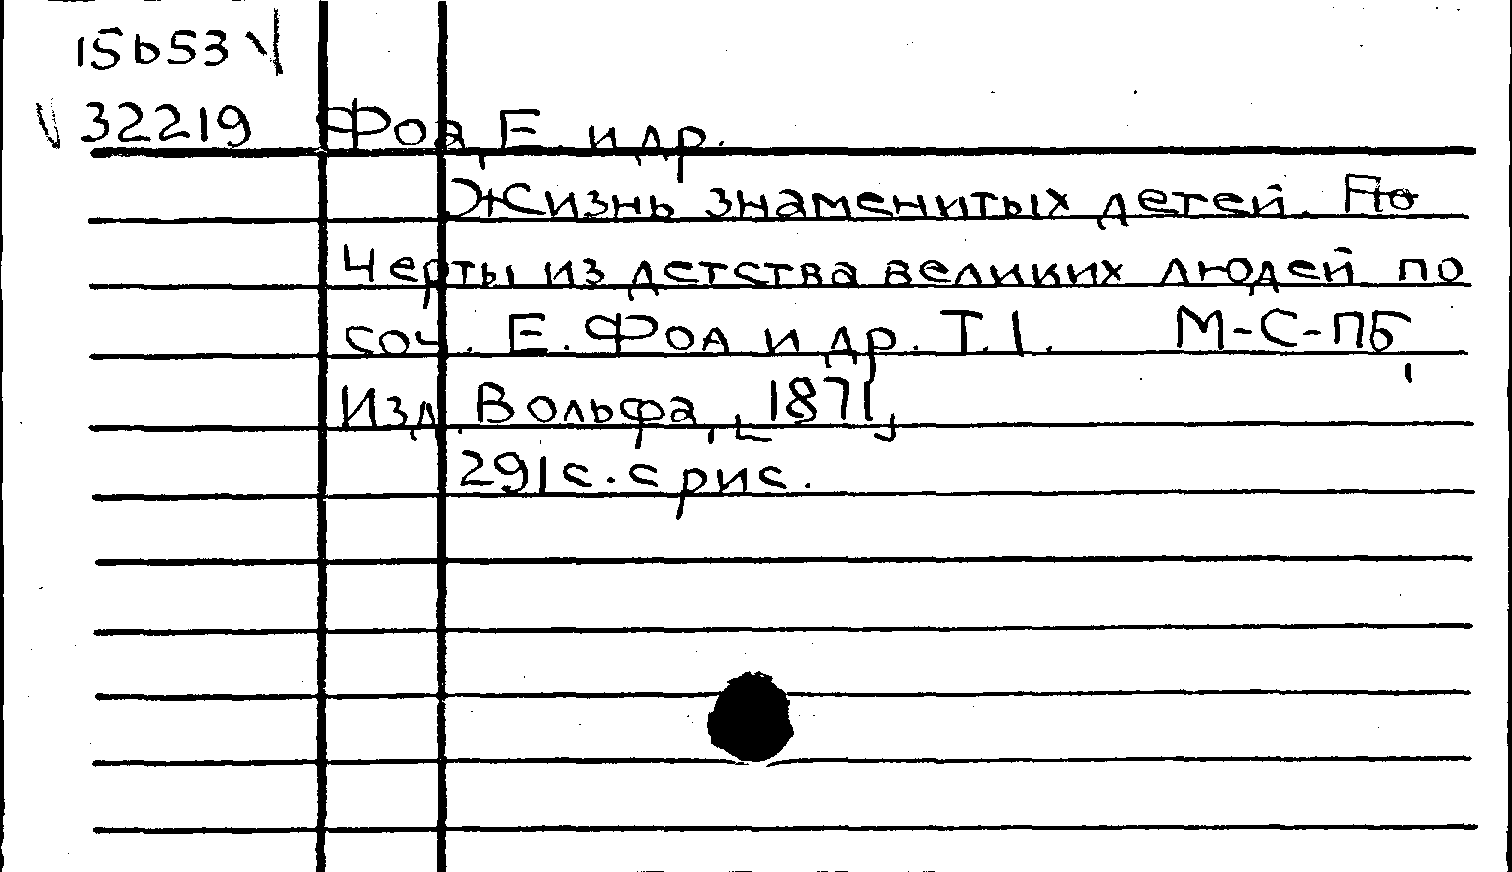 15b53 V
V 32219 Фоа, Е. и др.
Жизнь знаменитых детей. По
Черты из детства великих людей по
соч. Е. Фоа и др. Т.1. М-С-ПБ,
Изд. Вольфа, [1871]
291с. с рис.